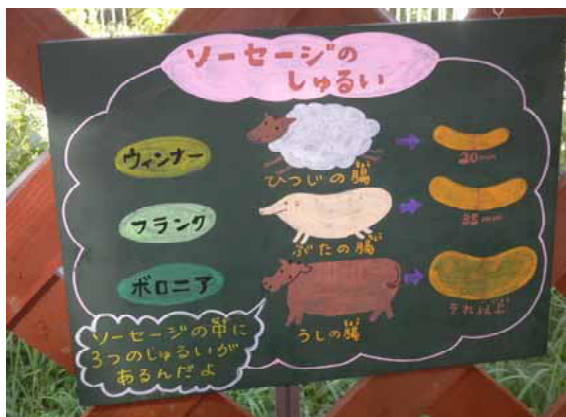 ソーセージの
しゅるい
ウィンナー
ひつじの腸
20mm
フランク
ぶたの腸
35mm
ボロニア
うしの腸
それ以上
ソーセージの中に
3つのしゅるいが
あるんだよ